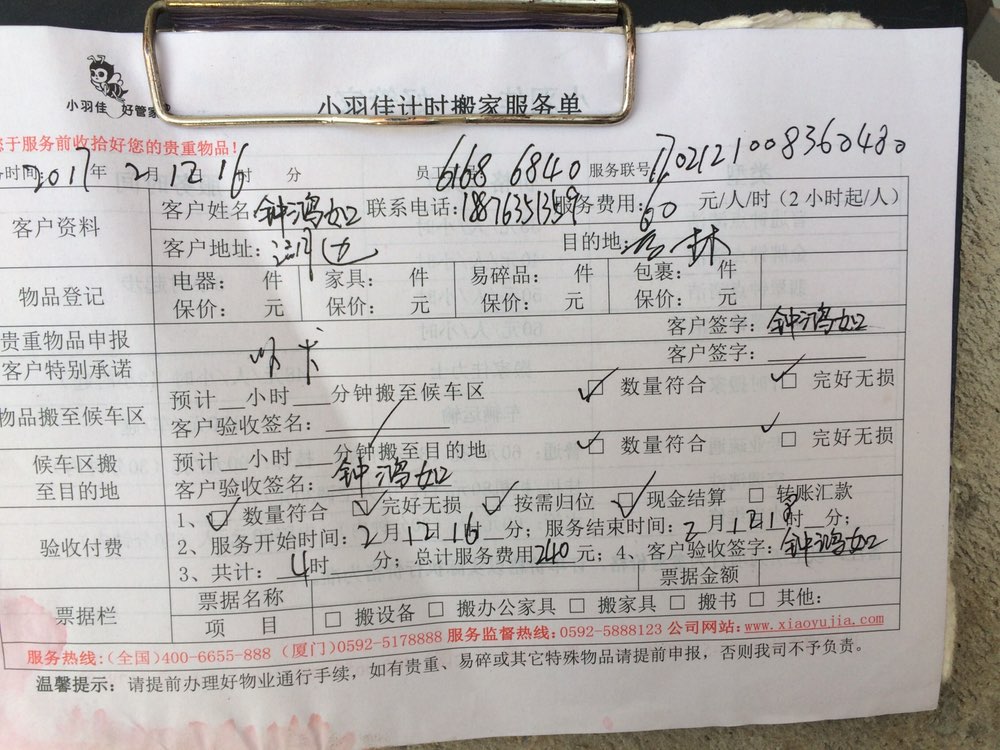 小羽佳 好管家
小羽佳计时搬家服务单
于服务前收拾好您的贵重物品！
时间：2017年 2月12 16时 分 员工 6168 6840 服务联号：1702121008360480
客户资料 客户姓名：钟鸿如 联系电话： 服务费用：60 元/人/时（2小时起/人）
客户地址： 边 目的地： 林
物品登记 电器： 件 家具： 件 易碎品： 件 包裹： 件
保价： 元 保价： 元 保价： 元 保价： 元
贵重物品申报 客户签字：钟鸿如
客户特别承诺 客户签字：
物品搬至候车区 预计__小时__分钟搬至候车区 ☑ 数量符合 ☑ 完好无损
客户验收签名：
候车区搬至目的地 预计__小时__分钟搬至目的地 ☑ 数量符合 ☑ 完好无损
客户验收签名：钟鸿如
验收付费 1、☑ 数量符合 ☑ 完好无损 ☑ 按需归位 ☑ 现金结算 □ 转账汇款
2、服务开始时间：2月12日16时__分；服务结束时间：2月12日18时__分；
3、共计：4时__分；总计服务费用240元；4、客户验收签字：钟鸿如
票据栏 票据名称 票据金额
项 目 □ 搬设备 □ 搬办公家具 □ 搬家具 □ 搬书 □ 其他：
服务热线：（全国）400-6655-888（厦门）0592-5178888 服务监督热线：0592-5888123 公司网站：www.xiaoyujia.com
温馨提示：请提前办理好物业通行手续，如有贵重、易碎或其它特殊物品请提前申报，否则我司不予负责。